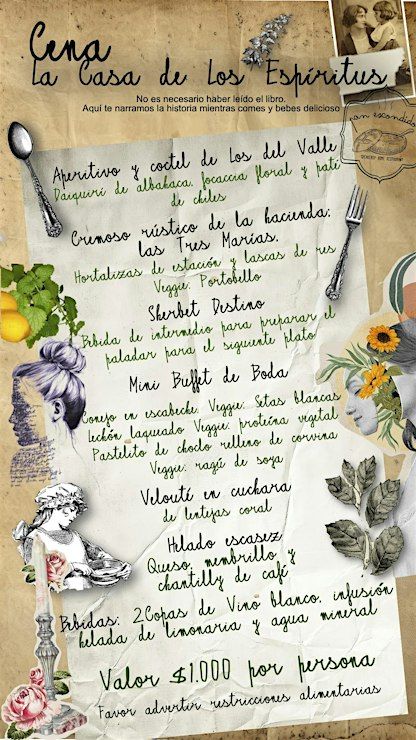 Cena
La Casa de Los Espíritus
No es necesario haber leído el libro.
Aquí te narramos la historia mientras comes y bebes delicioso
pan escondido
Aperitivo y coctel de Los del Valle
Daiquiri de albahaca, focaccia floral y paté
de chiles
Cremoso rústico de la hacienda:
las Tres Marías.
Hortalizas de estación y lascas de res
Veggie: Portobello
Sherbet Destino
Bebida de intermedio para preparar el
paladar para el siguiente plato
Mini Buffet de Boda
Conejo en escabeche Veggie: Setas blancas
lechón laqueado Veggie: proteína vegetal
Pastelito de choclo relleno de corvina
Veggie: ragú de soya
Velouté en cuchara
de lentejas coral
Helado escasez
Queso, membrillo y
chantilly de café
Bebidas: 2Copas de Vino blanco, infusión
helada de limonaria y agua mineral
Valor $1.000 por persona
Favor advertir restricciones alimentarias